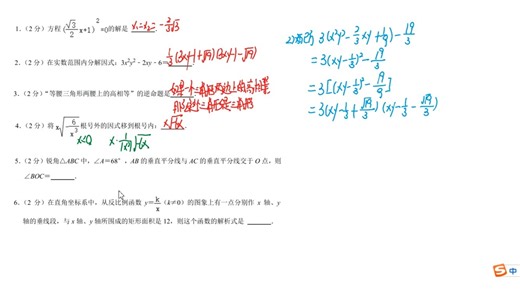 1.（2 分）方程 (√3/2 x+1)²=0的解是 x₁=x₂=-2/3√3
2.（2 分）在实数范围内分解因式：3x²y² - 2xy - 6= 1/3(3xy-1+√19)(3xy-1-√19)
3.（2 分）“等腰三角形两腰上的高相等”的逆命题是
4.（2 分）将 x√(-6/x³) 根号外的因式移到根号内：
x<0
5.（2 分）锐角△ABC 中，∠A=68°，AB 的垂直平分线与 AC 的垂直平分线交于 O 点，则
∠BOC= ______.
6.（2 分）在直角坐标系中，从反比例函数 y=k/x (k≠0) 的图象上有一点分别作 x 轴、y
轴的垂线段，与 x 轴、y 轴所围成的矩形面积是 12，则这个函数的解析式是 ______.
=3(xy-1/3)²-19/3
=3[(xy-1/3)²-19/9]
=3(xy-1/3+√19/3)(xy-1/3-√19/3)
中